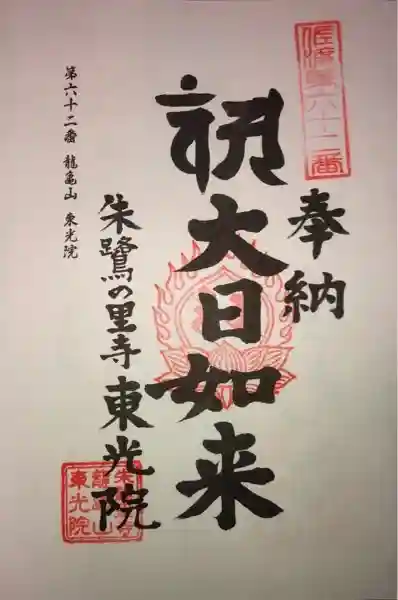 佐渡第六十二番
奉納
大日如来
朱鷺の里寺 東光院
第六十二番 龍亀山 東光院
龍亀山
東光院